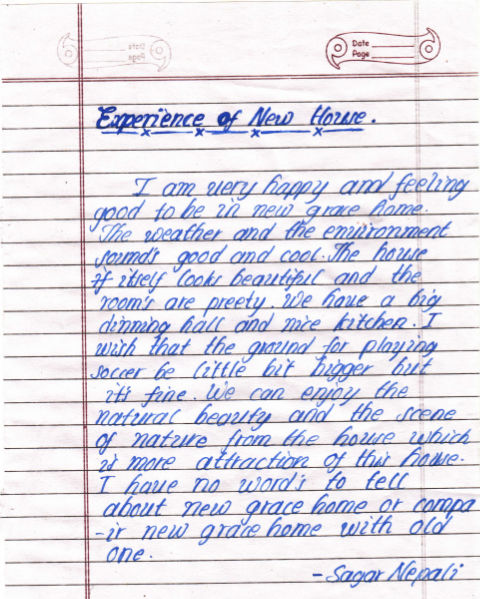 Date
Page
Experience of New House.
I am very happy and feeling
good to be in new grace home.
The weather and the environment
sounds good and cool. The house
if itself looks beautiful and the
room's are preety. We have a big
dinning hall and nice kitchen. I
wish that the ground for playing
soccer be little bit bigger but
it's fine. We can enjoy the
natural beauty and the scene
of nature from the house which
is more attraction of this house.
I have no word's to tell
about new grace home or compa
-ir new grace home with old
one.
- Sagar Nepali